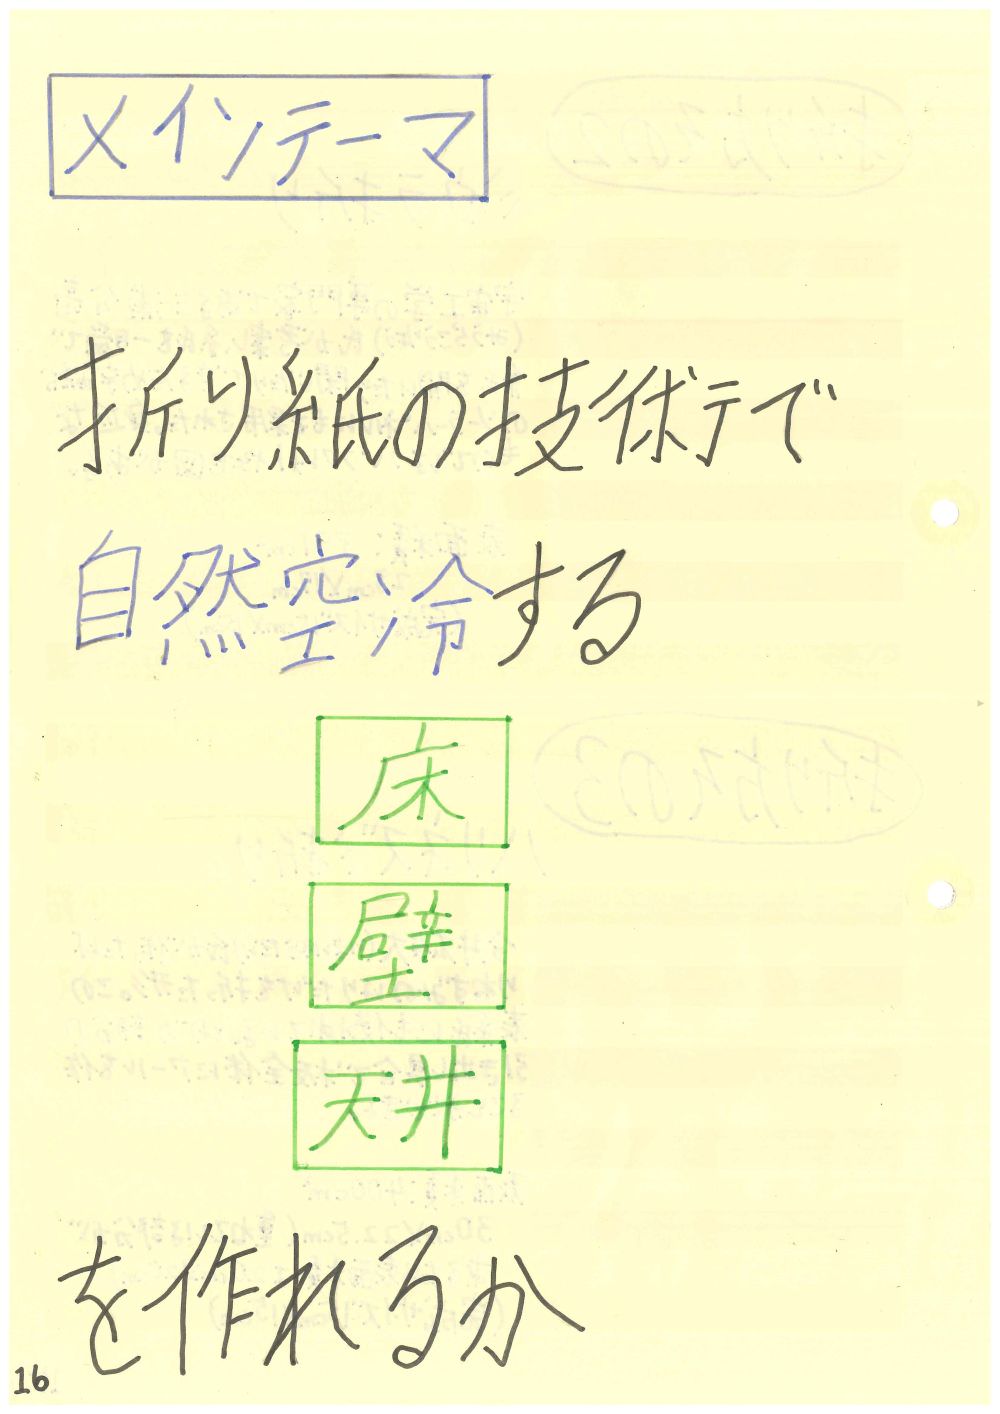 メインテーマ
折り紙の技術で
自然空冷する
床
壁
天井
を作れるか
16